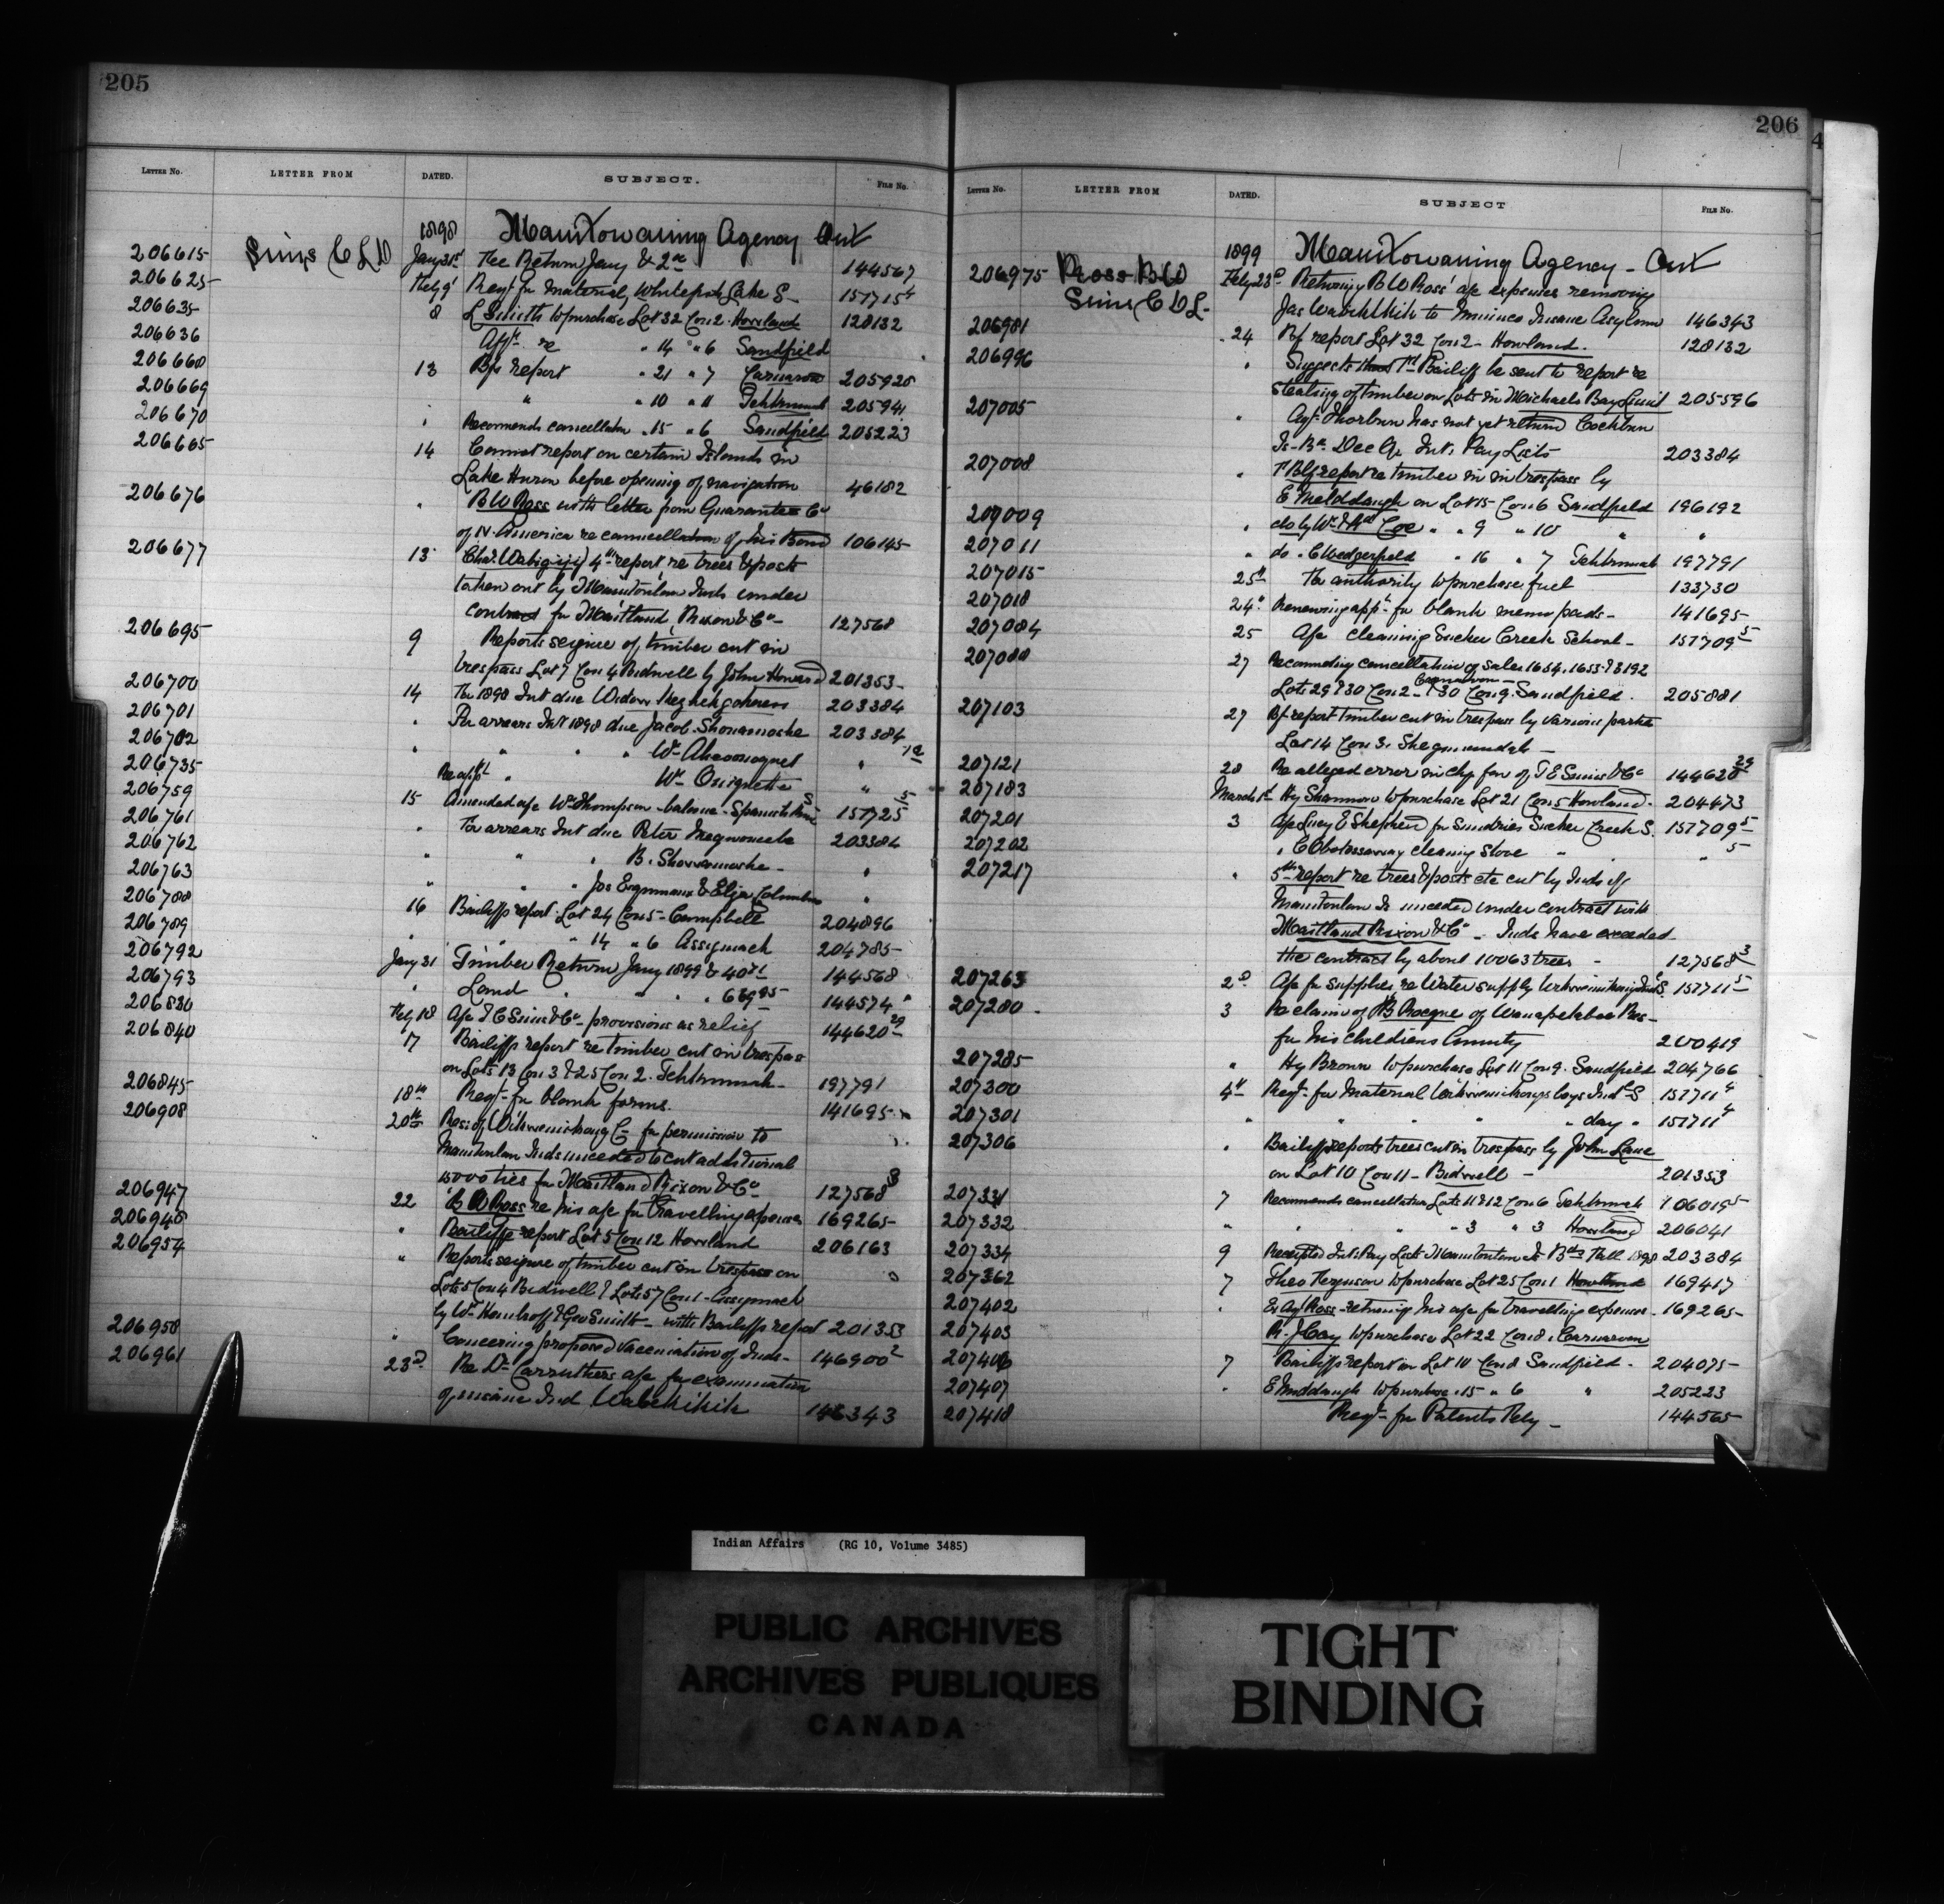 205
LETTER NO. LETTER FROM DATED. SUBJECT. FILE NO.
1898 Manitowaning Agency Ont
206615 Sims C L D Jany 31st Fee Return Jany & 2nd 144567
206625 Feby 9 Reqn for material, Whitefish Lake S. 157715 4
206635 8 L Smith to purchase Lot 32 Con 2. Howland 128132
206636 Afft re " 14 " 6 Sandfield
206668 13 Bfs report " 21 " 7 Carnarvon 205925
206669 " " 10 " 11 Tehkummah 205941
206670 Recommends cancellation " 15 " 6 Sandfield 205223
206665 14 Cannot report on certain Islands in
Lake Huron before opening of navigation 46182
206676 " B W Ross with letter from Guarantee Co
of N. America re cancellation of his Bond 106145
206677 13 Chas. Wabigijig 4th report re trees & posts
taken out by Manitoulin Inds under
contract for Maitland, Rixon & Co 127568
206695 9 Reports seizure of timber cut in
trespass Lot 7 Con 4 Bidwell by John Howard 201353
206700 14 For 1898 Int due Widow 203384
206701 " For arrears Int 1898 due Jacob Showamoshe 203384
206702 " " " " Wm "
206735 Re appl " Wm "
206759 15 Amended a/c Wm Thompson - balance - Spanish River S. 157725 5
206761 " For arrears Int due Peter 203384
206762 " " " B. Showamoshe "
206763 " " " Jos & Eliza "
206788 16 Bailiffs report Lot 24 Con 5 - Campbell 204896
206789 " " " 14 " 6 Assiginack 204785
206792 Jany 31 Timber Return Jany 1899 & 4071 144568
206793 " Land " " " 63985 144574
206830 Feby 18 A/c T C Sims & Co - provisions as relief 144620 29
206840 17 Bailiffs report re timber cut in trespass
on Lots 13 Con 3 & 25 Con 2. Tehkummah 197791
206845 18th Reqn for blank forms. 141695
206908 20th Res: of Wikwemikong C for permission to
Manitoulin Inds unceded to cut additional
15000 ties for Maitland Rixon & Co 127568 3
206947 22 B W Ross re his a/c for travelling expenses 169265
206948 " Bailiffs report Lot 5 Con 12 Howland 206163
206954 " Reports seizure of timber cut in trespass on
Lots 5 Con 4 Bidwell & Lots 57 Con 1 - Assiginack
by Wm & Geo Smith - with Bailiffs report 201353
206958 " Concerning proposed vaccination of Inds - 146900 2
206961 23d Re Dr Carruthers a/c for examination
of insane Ind Wabekikik 146343
206
LETTER NO. LETTER FROM DATED. SUBJECT FILE NO.
1899 Manitowaning Agency - Ont
206975 Ross B W Feby 23d Returning B W Ross' a/c expenses removing
Sims C D L - Jas Wabekikik to Mimico Insane Asylum 146343
206981 24 Bf report Lot 32 Con 2 - Howland. 128132
206996 " Suggests that Td Bailiff be sent to report re
stealing of timber on Lots in Michaels Bay Limit 205596
207005 " Agt Thorburn has not yet returned Cockburn
Is. Bd Dec Qr Int: Pay Lists 203384
207008 " Td Bfs report re timber in trespass by
E Middaugh on Lot 15 Con 6 Sandfield 196192
207009 " do by Wm & Coe " " 9 " 10 " "
207011 " do " C Wedgerfield " 16 " 7 Tehkummah 197791
207015 25th For authority to purchase fuel 133730
207018 24th Renewing appn for blank memo pads - 141695
207084 25 A/c cleaning Sucker Creek School - 157709 5
207088 27 Recommending cancellation of Sales 1654, 1655 & 3192
Carnarvon
Lots 29 & 30 Con 2 - & 30 Con 9. Sandfield. 205881
207103 27 Bf report timber cut in trespass by various parties
Lot 14 Con 3. Sheguiandah -
207121 28 Re alleged error in chq favr of T C Sims & Co 144620 29
207183 March 1st Hy Shannon to purchase Lot 21 Con 5 Howland. 204473
207201 3 A/c Lucy E Shepherd for Sundries Sucker Creek S. 157709 5
207202 " C cleaning stove " " " 5
207217 " 5th report re trees & posts etc cut by Inds of
Manitoulin Is unceded under contract with
Maitland Rixon & Co. Inds have exceeded
the contract by about 10063 trees - 127568 3
207263 2d A/c for supplies re Water supply Wikwemikong Ind S. 157711 5
207280 3 Re claim of B Rocque of Wanapitebee Res -
for his childrens annuity 200419
207285 " Hy Brown to purchase Lot 11 Con 9. Sandfield 204766
207300 4th Reqn for Material Wikwemikong boys Indl S 157711 4
207301 " " " " " day " 157711 4
207306 " Bailiff reports trees cut in trespass by John Lane
on Lot 10 Con 11 - Bidwell - 201353
207331 7 Recommends cancellation Lots 11 & 12 Con 6 Tehkummah 106015
207332 " " " " 3 " 3 Howland 206041
207334 9 Receipted Int: Pay Lists Manitoulin Is Bds Fall 1898 203384
207362 7 Theo Ferguson to purchase Lot 25 Con 1 Howland 169417
207402 " Ex Agt Ross - returning his a/c for travelling expenses - 169265
207403 R. J. Cay to purchase Lot 22 Con 8. Carnarvon
207406 7 Bailiffs report on Lot 10 Con 8 Sandfield. 204075
207407 " E Middaugh to purchase " 15 " 6 " 205223
207418 Reqn for Patents Feby - 144565
Indian Affairs (RG 10, Volume 3485)
PUBLIC ARCHIVES
ARCHIVES PUBLIQUES
CANADA
TIGHT
BINDING